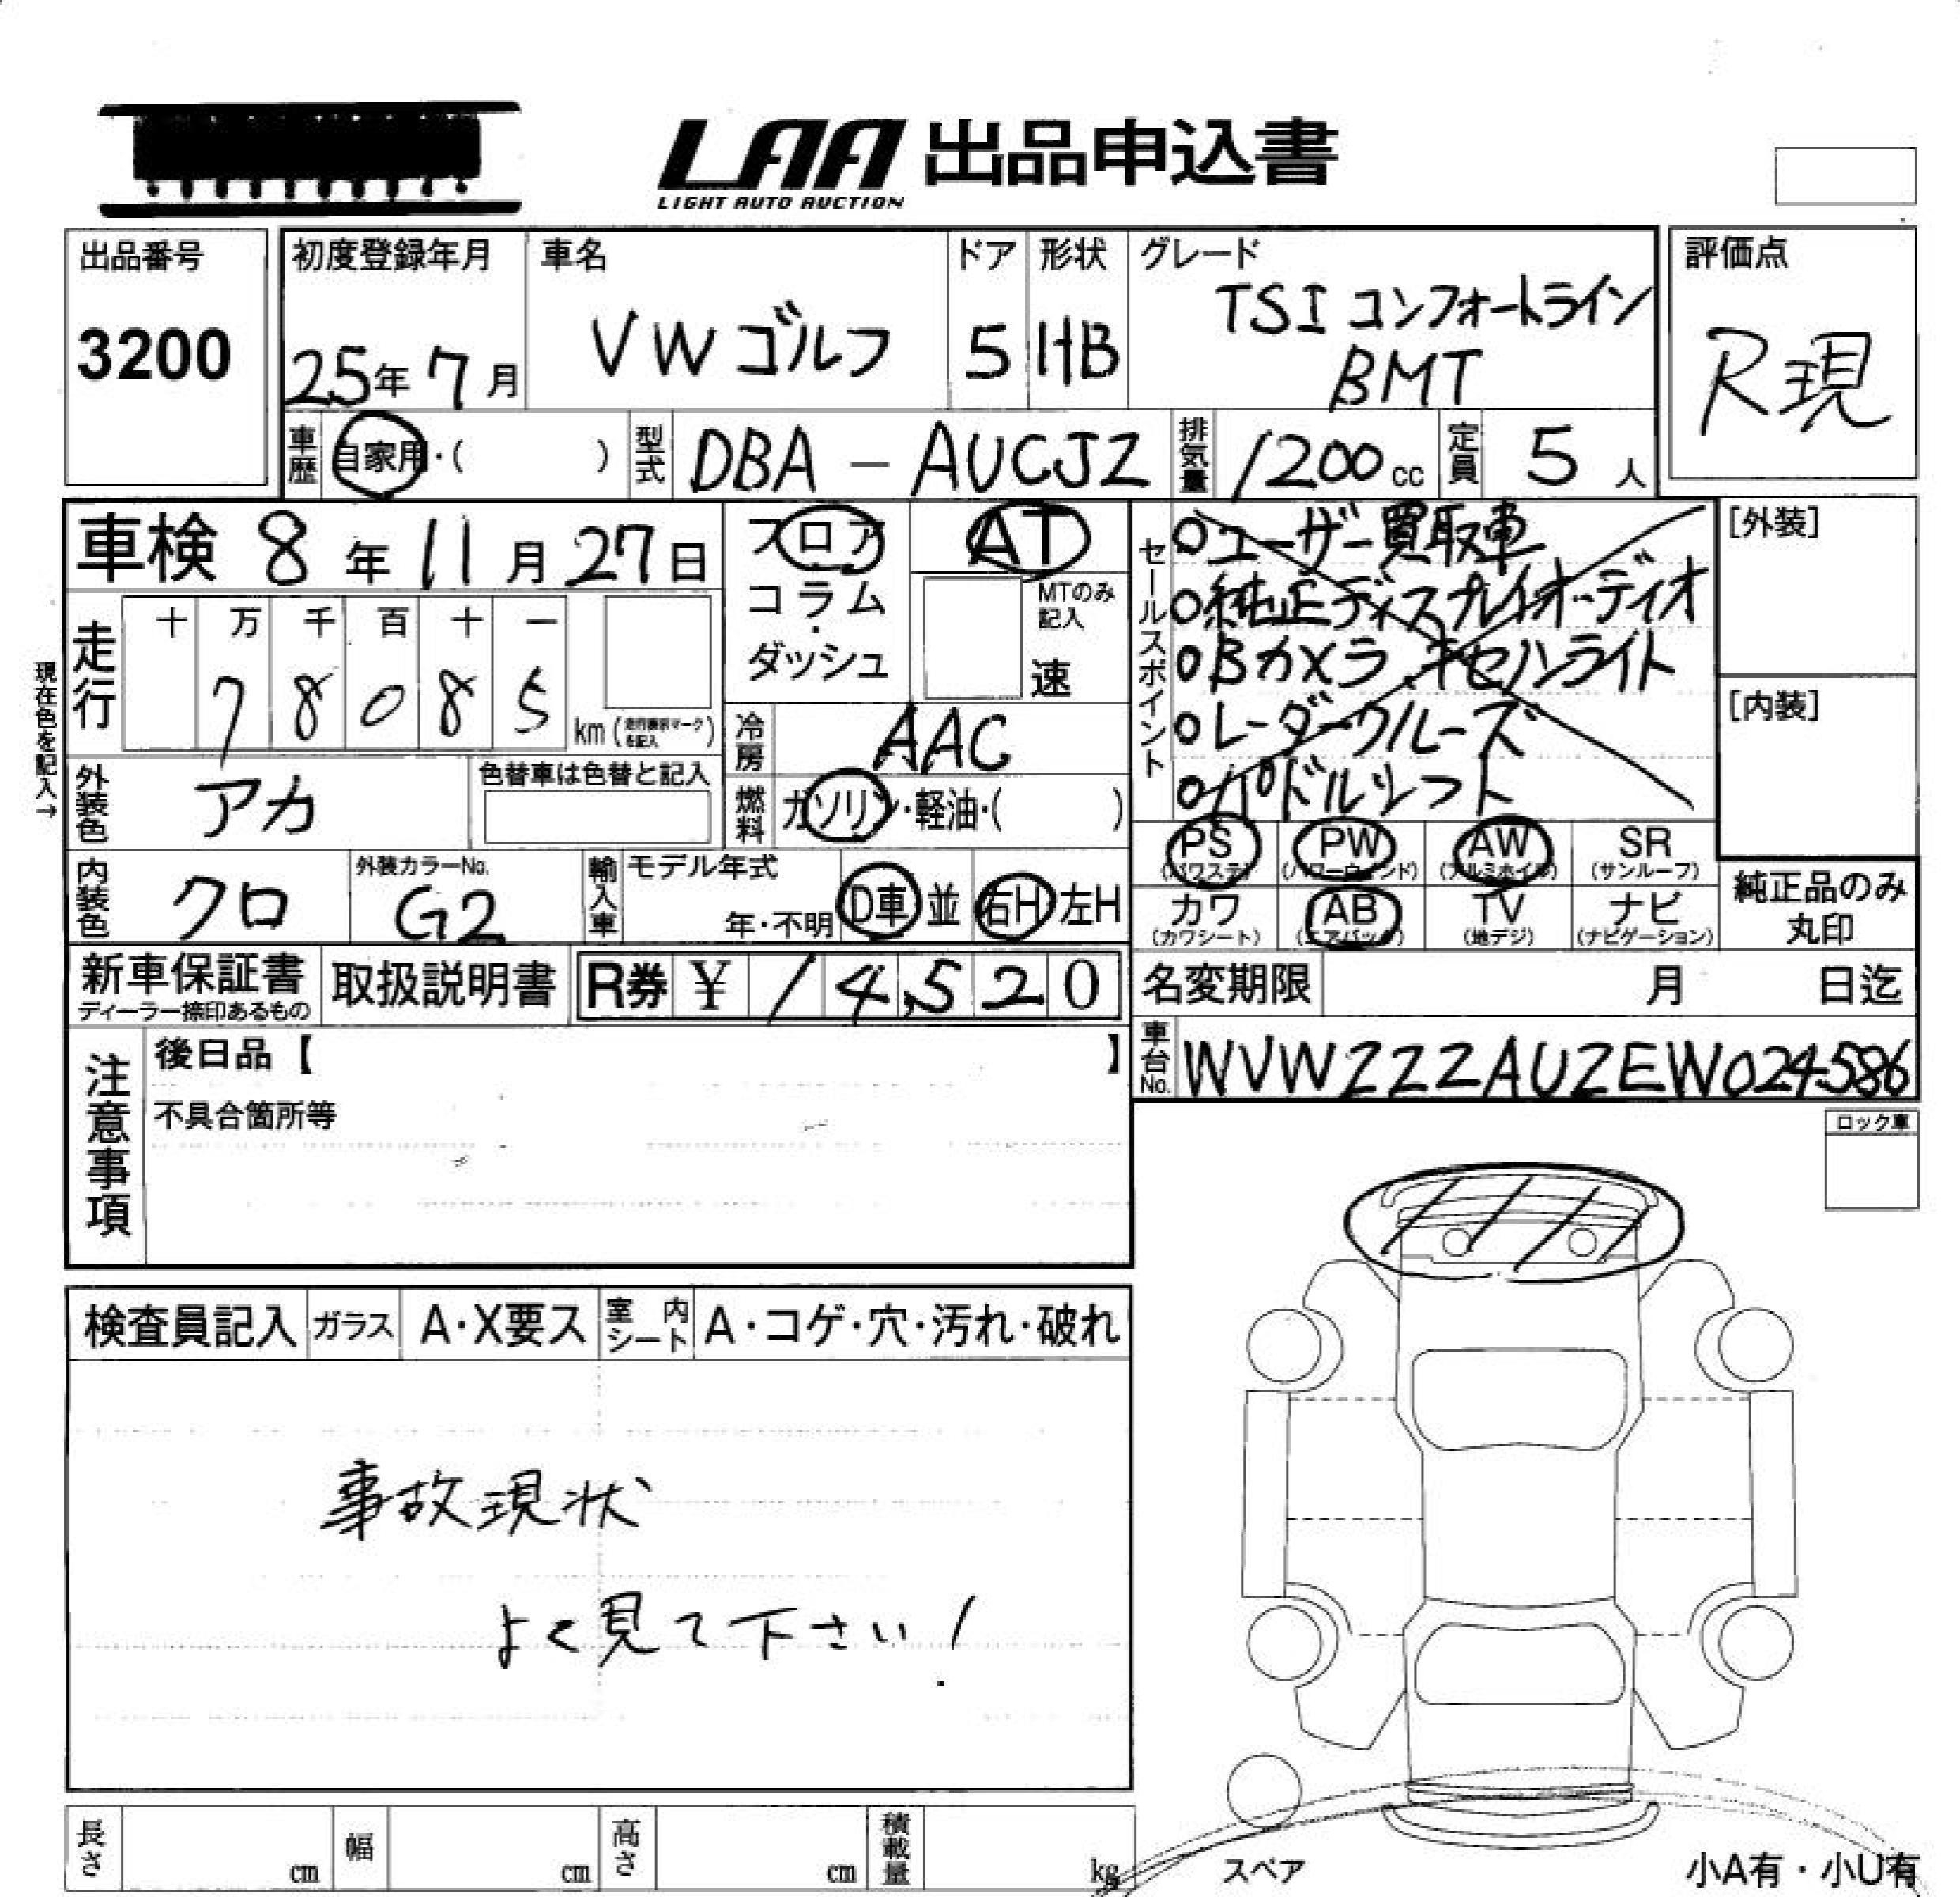 LAA 出品申込書
LIGHT AUTO AUCTION
出品番号
3200
初度登録年月
25年 7月
車名
VW ゴルフ
ドア
5
形状
HB
グレード
TSI コンフォートライン
BMT
評価点
R現
車歴
自家用・( )
型式
DBA - AUCJZ
排気量
1200 cc
定員
5 人
車検 8 年 11 月 27 日
フロア
コラム
・
ダッシュ
AT
MTのみ
記入
速
セールスポイント
○ユーザー買取車
○純正ディスプレイオーディオ
○Bカメラ、キセノンライト
○レーダークルーズ
○パドルシフト
[外装]
[内装]
現在色を記入→
走行
十 万 千 百 十 一
7 8 0 8 5
km (走行表示マークを記入)
冷房
AAC
外装色
アカ
色替車は色替と記入
燃料
ガソリン・軽油・( )
PS
(パワステ)
PW
(パワーウインド)
AW
(アルミホイル)
SR
(サンルーフ)
内装色
クロ
外装カラーNo.
G2
輸入車
モデル年式
年・不明
D車 並
右H 左H
カワ
(カワシート)
AB
(エアバック)
TV
(地デジ)
ナビ
(ナビゲーション)
純正品のみ
丸印
新車保証書
ディーラー捺印あるもの
取扱説明書
R券 ¥ 14,520
名変期限
月 日迄
注意事項
後日品【 】
不具合箇所等
車台No.
WVWZZZAUZEW024586
ロック車
検査員記入
ガラス
A・X要ス
室内シート
A・コゲ・穴・汚れ・破れ
事故現状
よく見て下さい!
長さ
cm
幅
cm
高さ
cm
積載量
kg
スペア
小A有・小U有